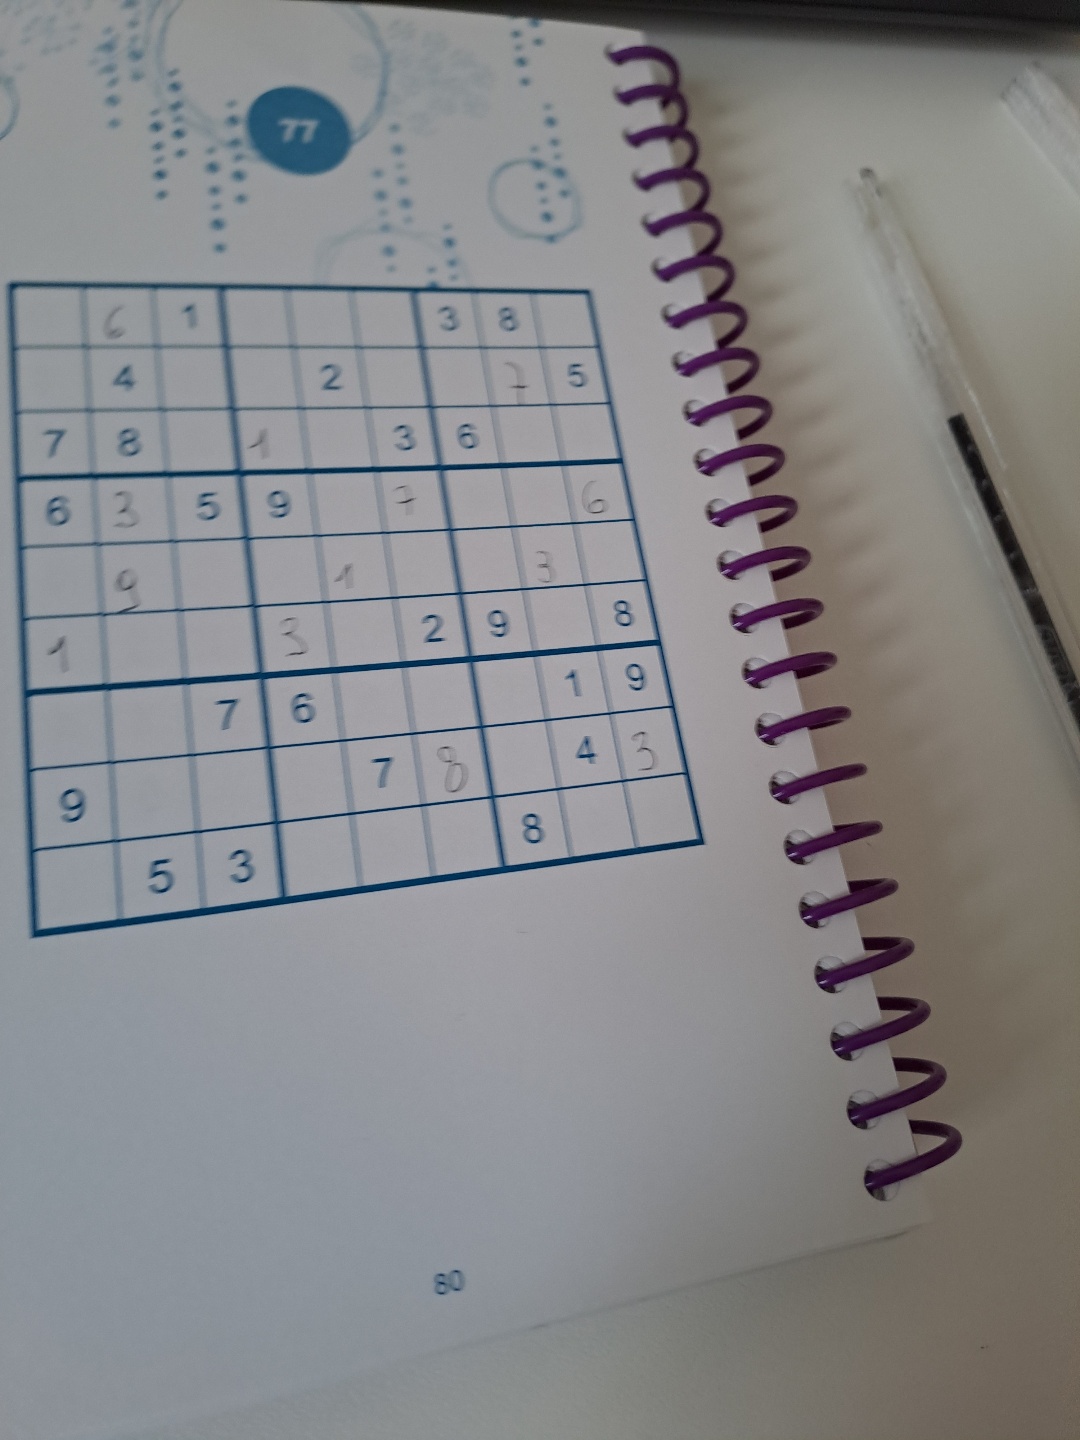 77
6 1 3 8
4 2 7 5
7 8 1 3 6
6 3 5 9 7 6
9 1 3
1 3 2 9 8
7 6 1 9
9 7 8 4 3
5 3 8
80